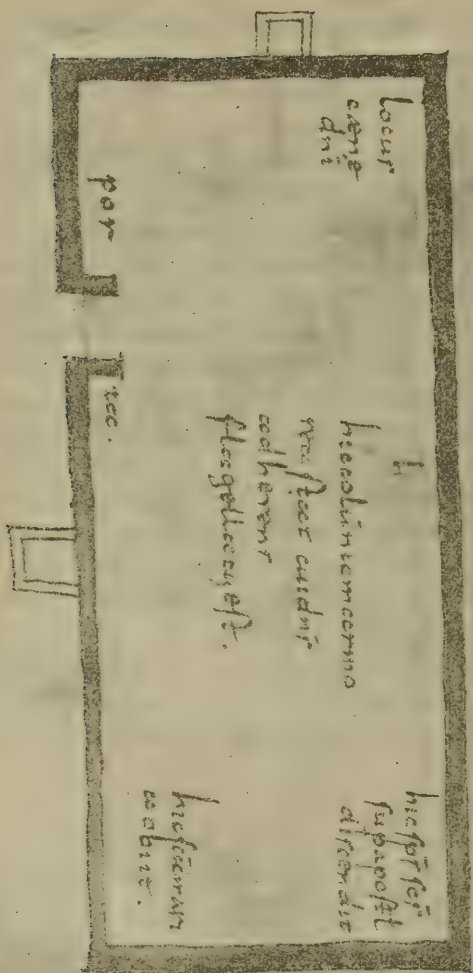 locus
caenę
dni
por
ta.
h
hic colūna marmo
rea stat cui dns
adherens
flagellatus est.
hic sps scs
sup apostl
discendit
hic sca mari
a obiit.